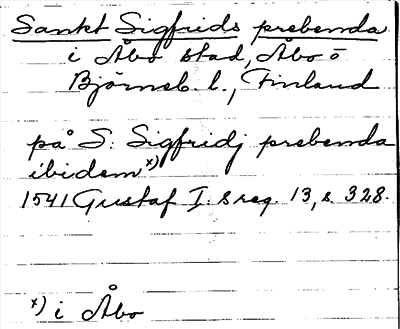 Sankt Sigfrids prebenda
i Åbo stad, Åbo o
Björneb. l., Finland
på S: Sigfridj prebenda
ibidem x)
1541 Gustaf I:s reg. 13, s. 328.
x) i Åbo